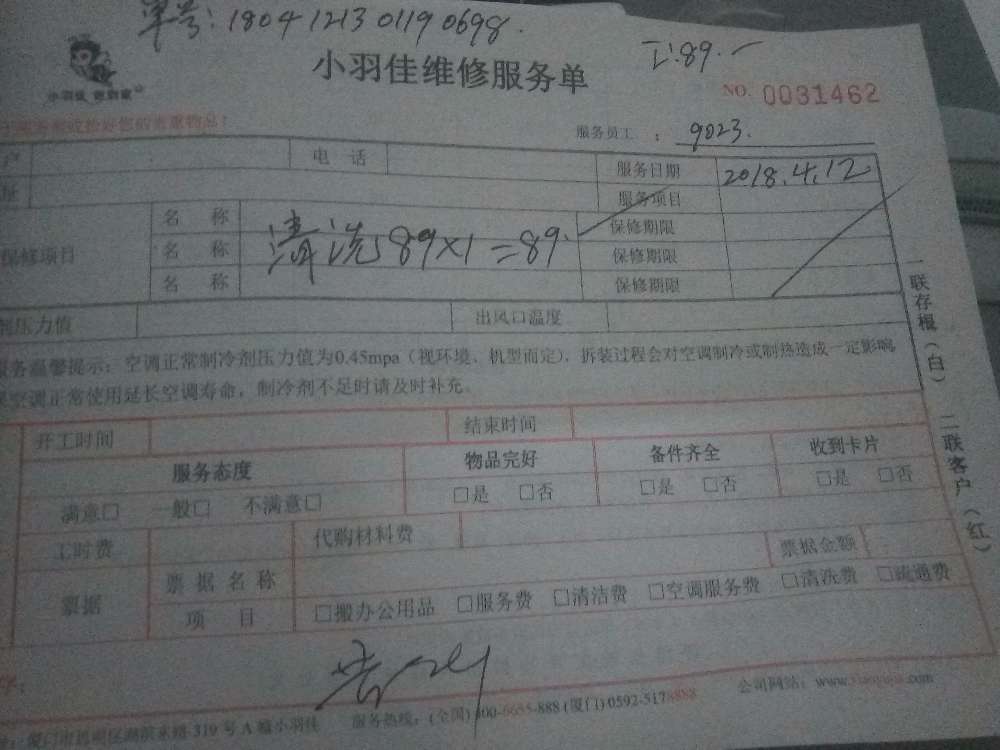 单号:1804 1213 0119 0698.
工:89.一
小羽佳维修服务单
NO. 0031462
服务员工 : 9023.
户 电 话 服务日期 2018.4.12
址 服务项目
保修项目 名 称 清洗 89×1=89. 保修期限
名 称 保修期限
名 称 保修期限
剂压力值 出风口温度
服务温馨提示:空调正常制冷剂压力值为0.45mpa(视环境、机型而定),拆装过程会对空调制冷或制热造成一定影响
空调正常使用延长空调寿命,制冷剂不足时请及时补充。
开工时间 结束时间
服务态度 物品完好 备件齐全 收到卡片
满意□ 一般□ 不满意□ □是 □否 □是 □否 □是 □否
工时费 代购材料费
票据 票 据 名 称 票据金额
项 目 □搬办公用品 □服务费 □清洁费 □空调服务费 □清洗费 □疏通费
一联存根(白) 二联客户(红)
319号A幢小羽佳 服务热线:(全国)400-6655-888 (厦门)0592-5178888 公司网站:www.xiaoyujia.com